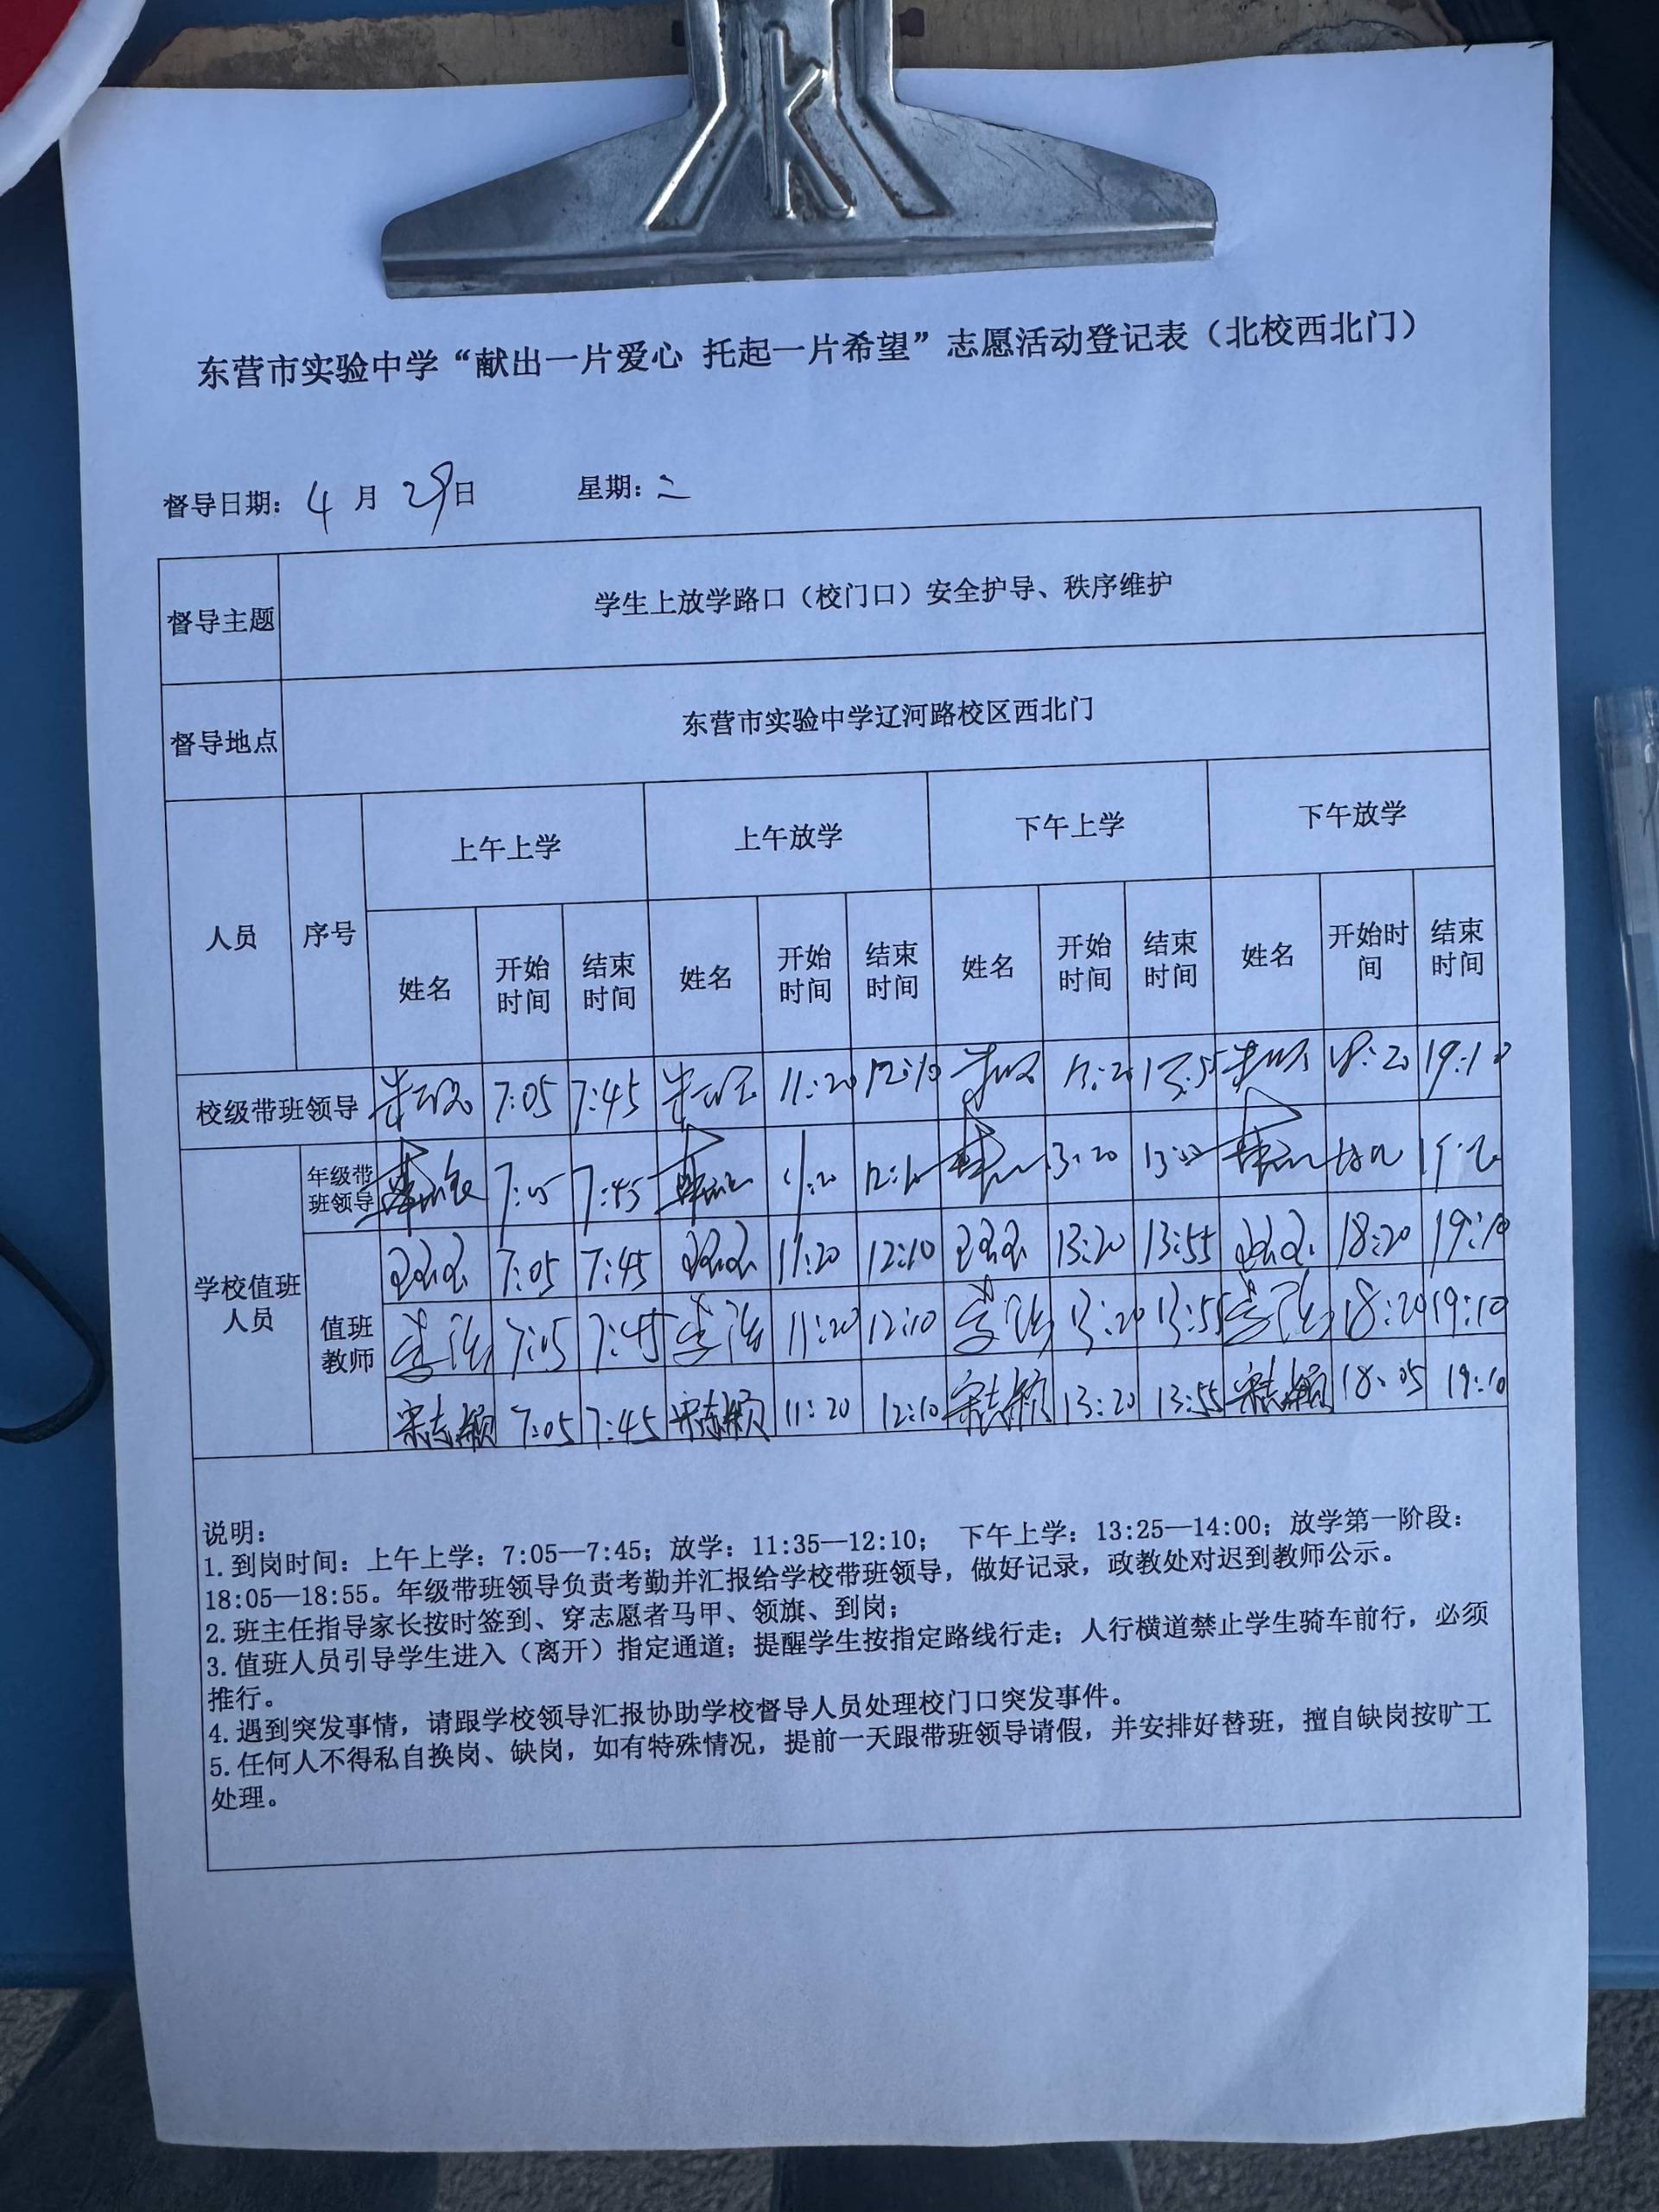 东营市实验中学“献出一片爱心 托起一片希望”志愿活动登记表（北校西北门）
督导日期： 4 月 29 日 星期：二
督导主题 学生上放学路口（校门口）安全护导、秩序维护
督导地点 东营市实验中学辽河路校区西北门
人员 序号 上午上学 上午放学 下午上学 下午放学
姓名 开始时间 结束时间 姓名 开始时间 结束时间 姓名 开始时间 结束时间 姓名 开始时间 结束时间
校级带班领导 7:05 7:45 11:20 12:10 13:20 13:55 18:20 19:10
学校值班人员
年级带班领导 7:05 7:45 11:20 12:10 13:20
值班教师
7:05 7:45 11:20 12:10 13:20 13:55 18:20 19:10
7:05 7:45 11:20 12:10 13:20 13:55 18:20 19:10
宋志颖 7:05 7:45 宋志颖 11:20 12:10 宋志颖 13:20 13:55 宋志颖 18:05 19:10
说明：
1.到岗时间：上午上学：7:05—7:45；放学：11:35—12:10； 下午上学：13:25—14:00；放学第一阶段：
18:05—18:55。年级带班领导负责考勤并汇报给学校带班领导，做好记录，政教处对迟到教师公示。
2.班主任指导家长按时签到、穿志愿者马甲、领旗、到岗；
3.值班人员引导学生进入（离开）指定通道；提醒学生按指定路线行走；人行横道禁止学生骑车前行，必须
推行。
4.遇到突发事情，请跟学校领导汇报协助学校督导人员处理校门口突发事件。
5.任何人不得私自换岗、缺岗，如有特殊情况，提前一天跟带班领导请假，并安排好替班，擅自缺岗按旷工
处理。